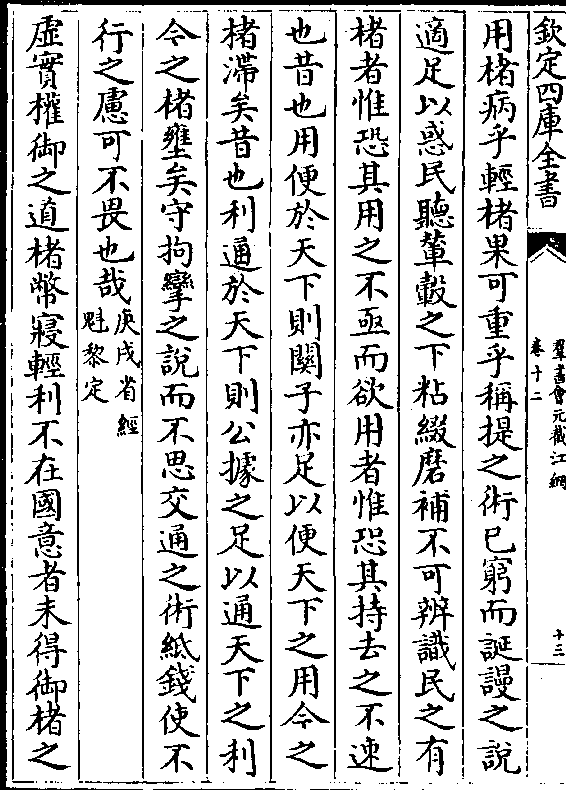 欽定四庫全書
羣書會元截江網
卷十二
十三
用楮病乎輕楮果可重乎稱提之術已窮而誕謾之說
適足以惑民聽輦轂之下粘綴磨補不可辨識民之有
楮者惟恐其用之不亟而欲用者惟恐其持去之不速
也昔也用便於天下則關子亦足以便天下之用今之
楮滯矣昔也利通於天下則公據之足以通天下之利
今之楮壅矣守拘攣之說而不思交通之術紙錢使不
行之慮可不畏也哉
庚戌省經
魁黎定
虛實權御之道楮幣寖輕利不在國意者未得御楮之